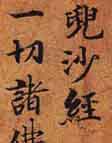 兜沙經
一切諸佛